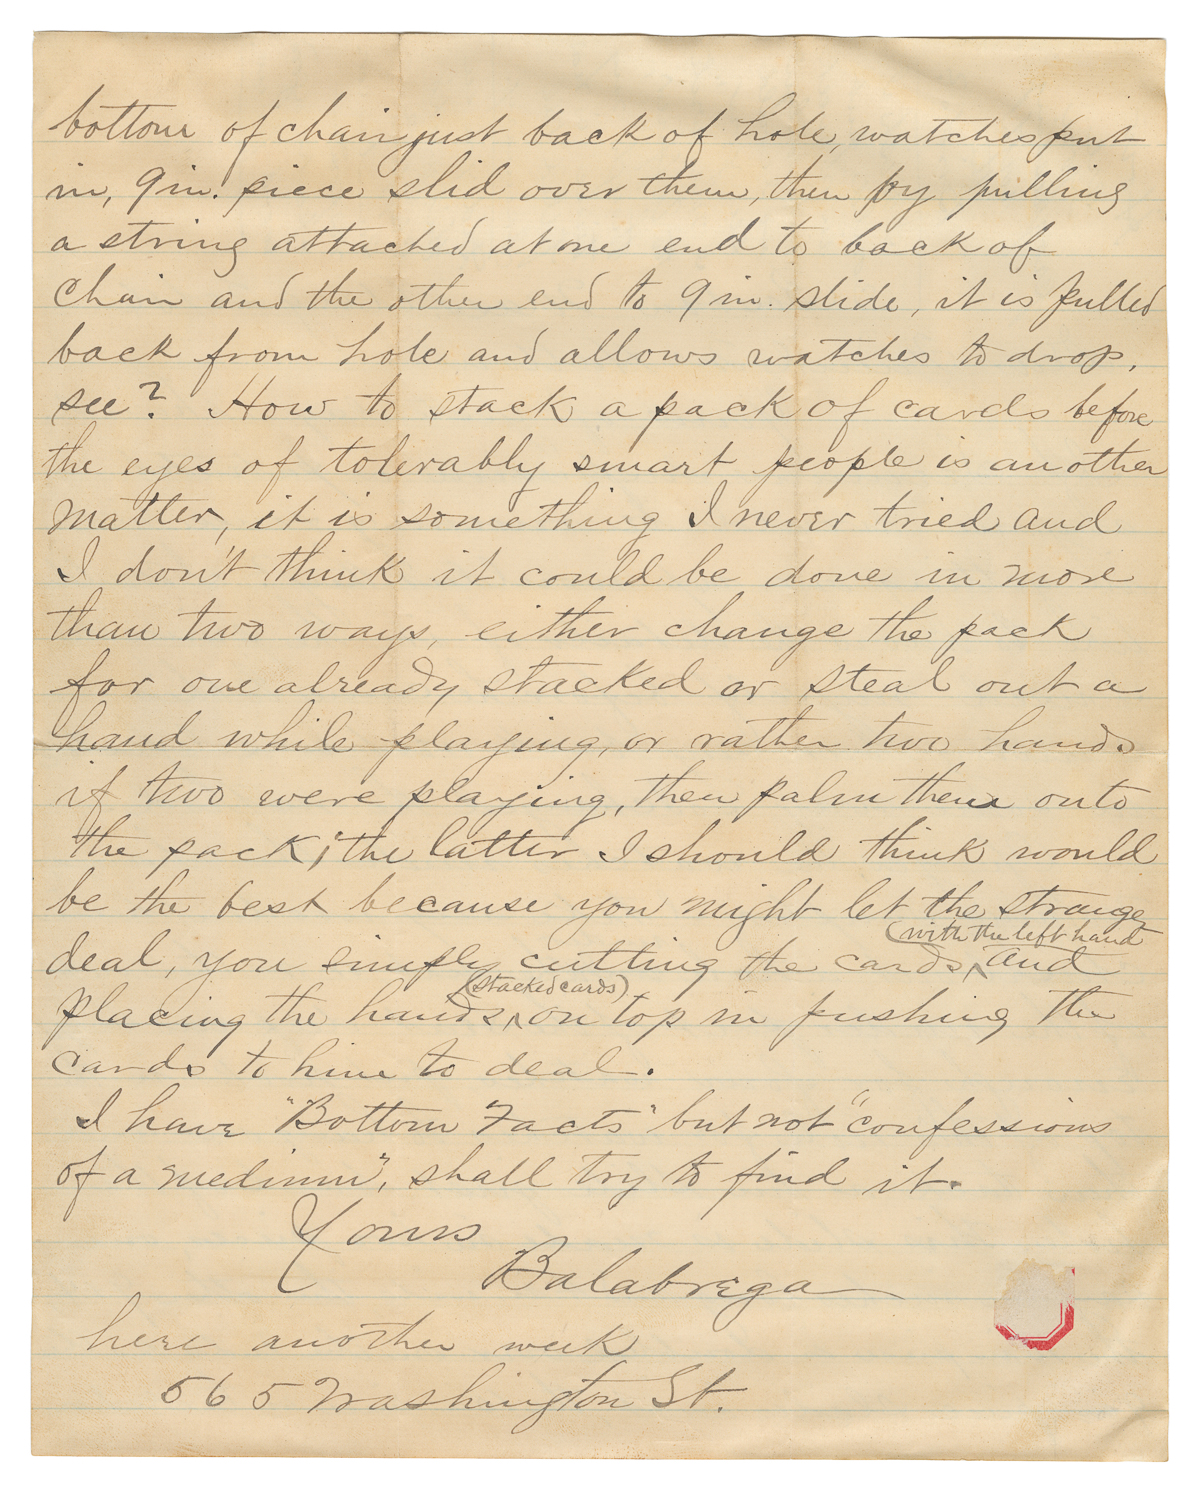 bottom of chair just back of hole, watches put
in, 9 in. piece slid over them, then by pulling
a string attached at one end to back of
chair and the other end to 9 in. slide, it is pulled
back from hole and allows watches to drop,
see? How to stack a pack of cards before
the eyes of tolerably smart people is another
matter, it is something I never tried and
I don't think it could be done in more
than two ways, either change the pack
for one already stacked or steal out a
hand while playing, or rather two hands
if two were playing, then palm them onto
the pack; the latter I should think would
be the best because you might let the strange
(with the left hand
deal, you simply cutting the cards, ^ and
(stacked cards)
placing the hands ^ on top in pushing the
cards to him to deal.
I have "Bottom Facts" but not "confessions
of a medium", shall try to find it.
Yours
Balabrega
here another week
565 Washington St.